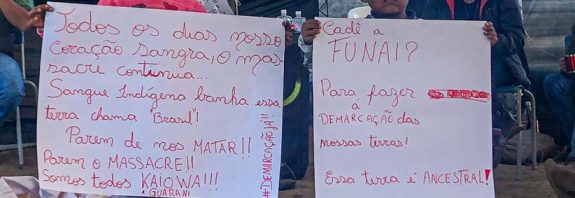 Todos os dias nosso
coração sangra, o mas
sacre continua...
Sangue Indígena banha essa
terra chama "Brasil"!
Parem de nos MATAR!!
Parem o MASSACRE!!
Somos todos KAIOWA!!!
GUARANI
#DEMARCAÇÃO JÁ!!
Cadê a
FUNAI?
Para fazer
a
DEMARCAÇÃO das
nossas terras!
Essa terra é ANCESTRAL!